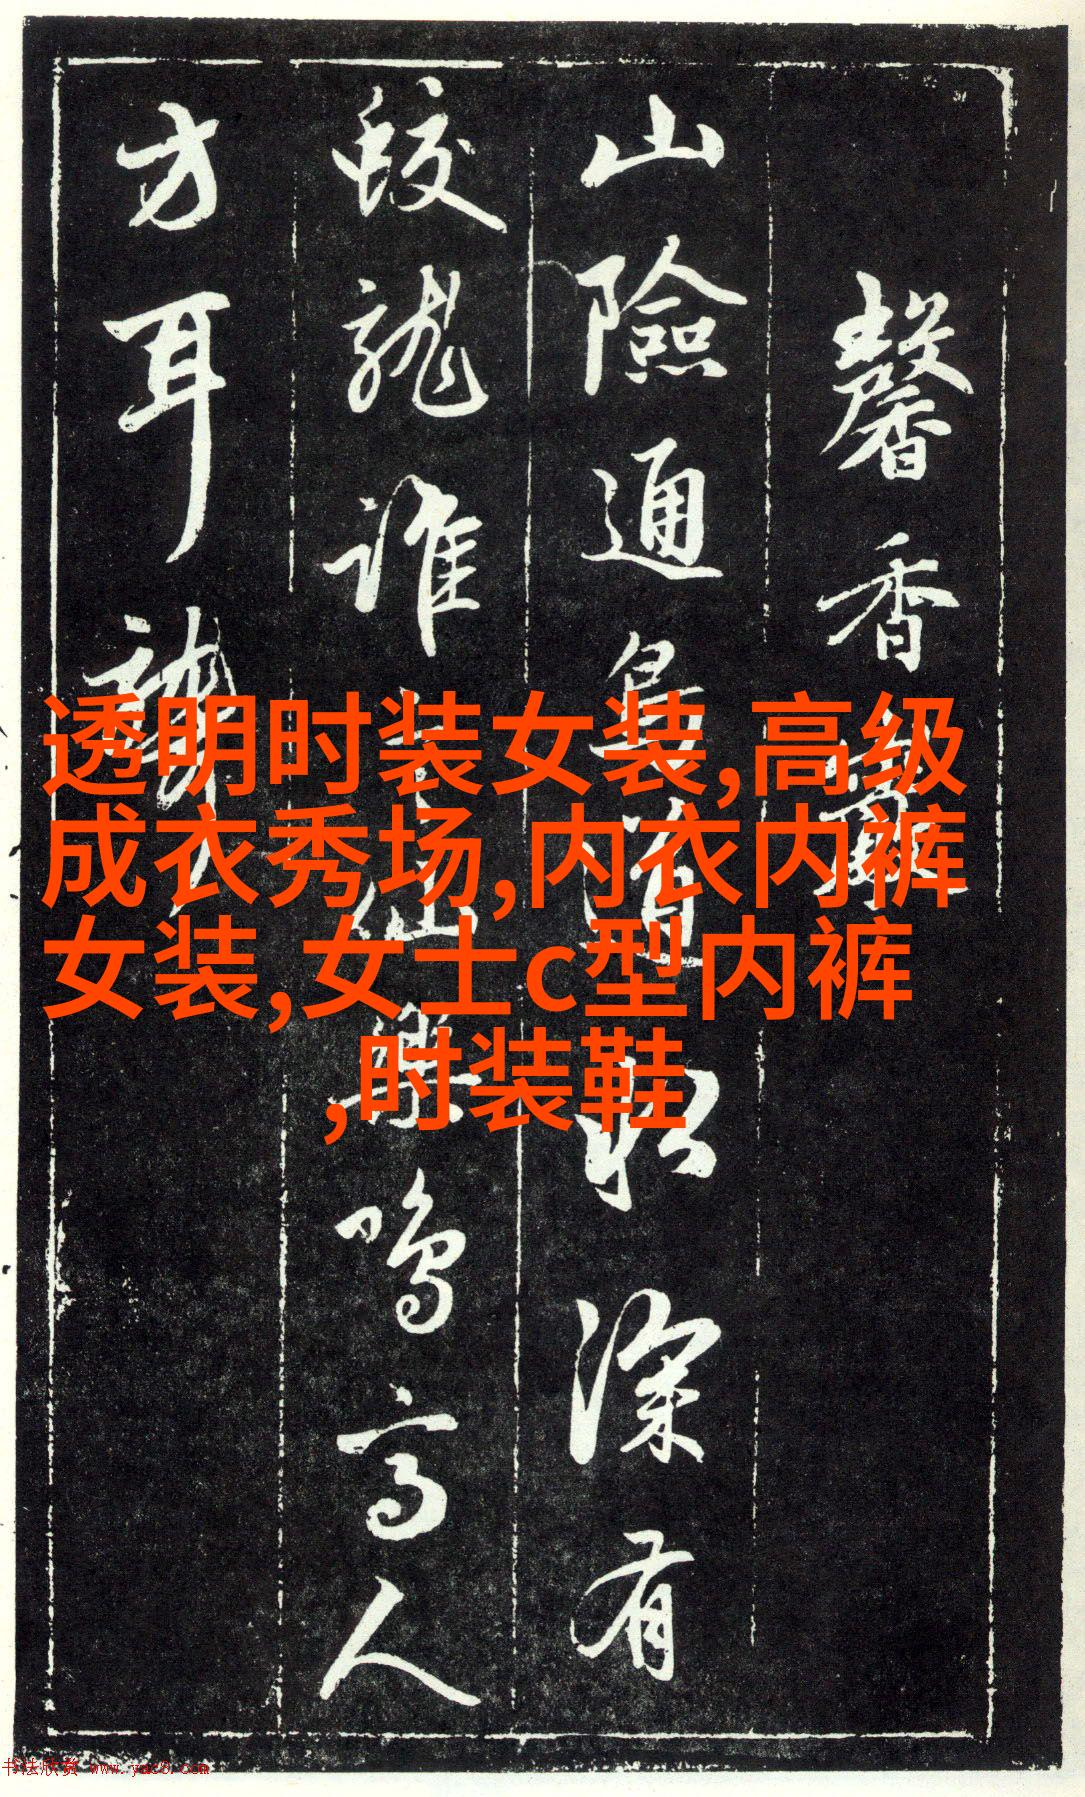 馨香
山險通鳥道 深有
蛟龍誰 仙樂鳴高人
方耳
透明时装女装,高级
成衣秀场,内衣内裤
女装,女士c型内裤
,时装鞋
书法欣赏 www.yac8.com